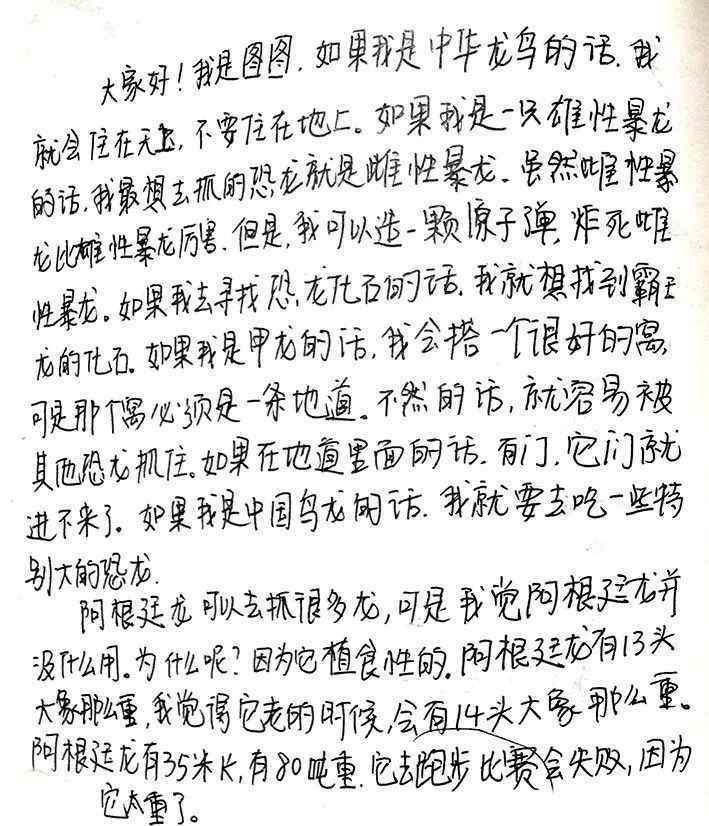 大家好！我是图图．如果我是中华龙鸟的话．我
就会住在天上，不要住在地上。如果我是一只雄性暴龙
的话，我最想去抓的恐龙就是雌性暴龙．虽然雌性暴
龙比雄性暴龙厉害．但是，我可以造一颗原子弹，炸死雌
性暴龙。如果我去寻找恐龙化石的话．我就想找到霸王
龙的化石。如果我是甲龙的话，我会搭一个很好的窝，
可是那个窝必须是一条地道。不然的话，就容易被
其他恐龙抓住。如果在地道里面的话．有门．它们就
进不来了。如果我是中国鸟龙的话．我就要去吃一些特
别大的恐龙．
阿根廷龙可以去抓很多龙，可是我觉阿根廷龙并
没什么用。为什么呢？因为它植食性的．阿根廷龙有13头
大象那么重，我觉得它老的时候，会有14头大象那么重。
阿根廷龙有35米长，有80吨重．它去跑步比赛会失败，因为
它太重了。